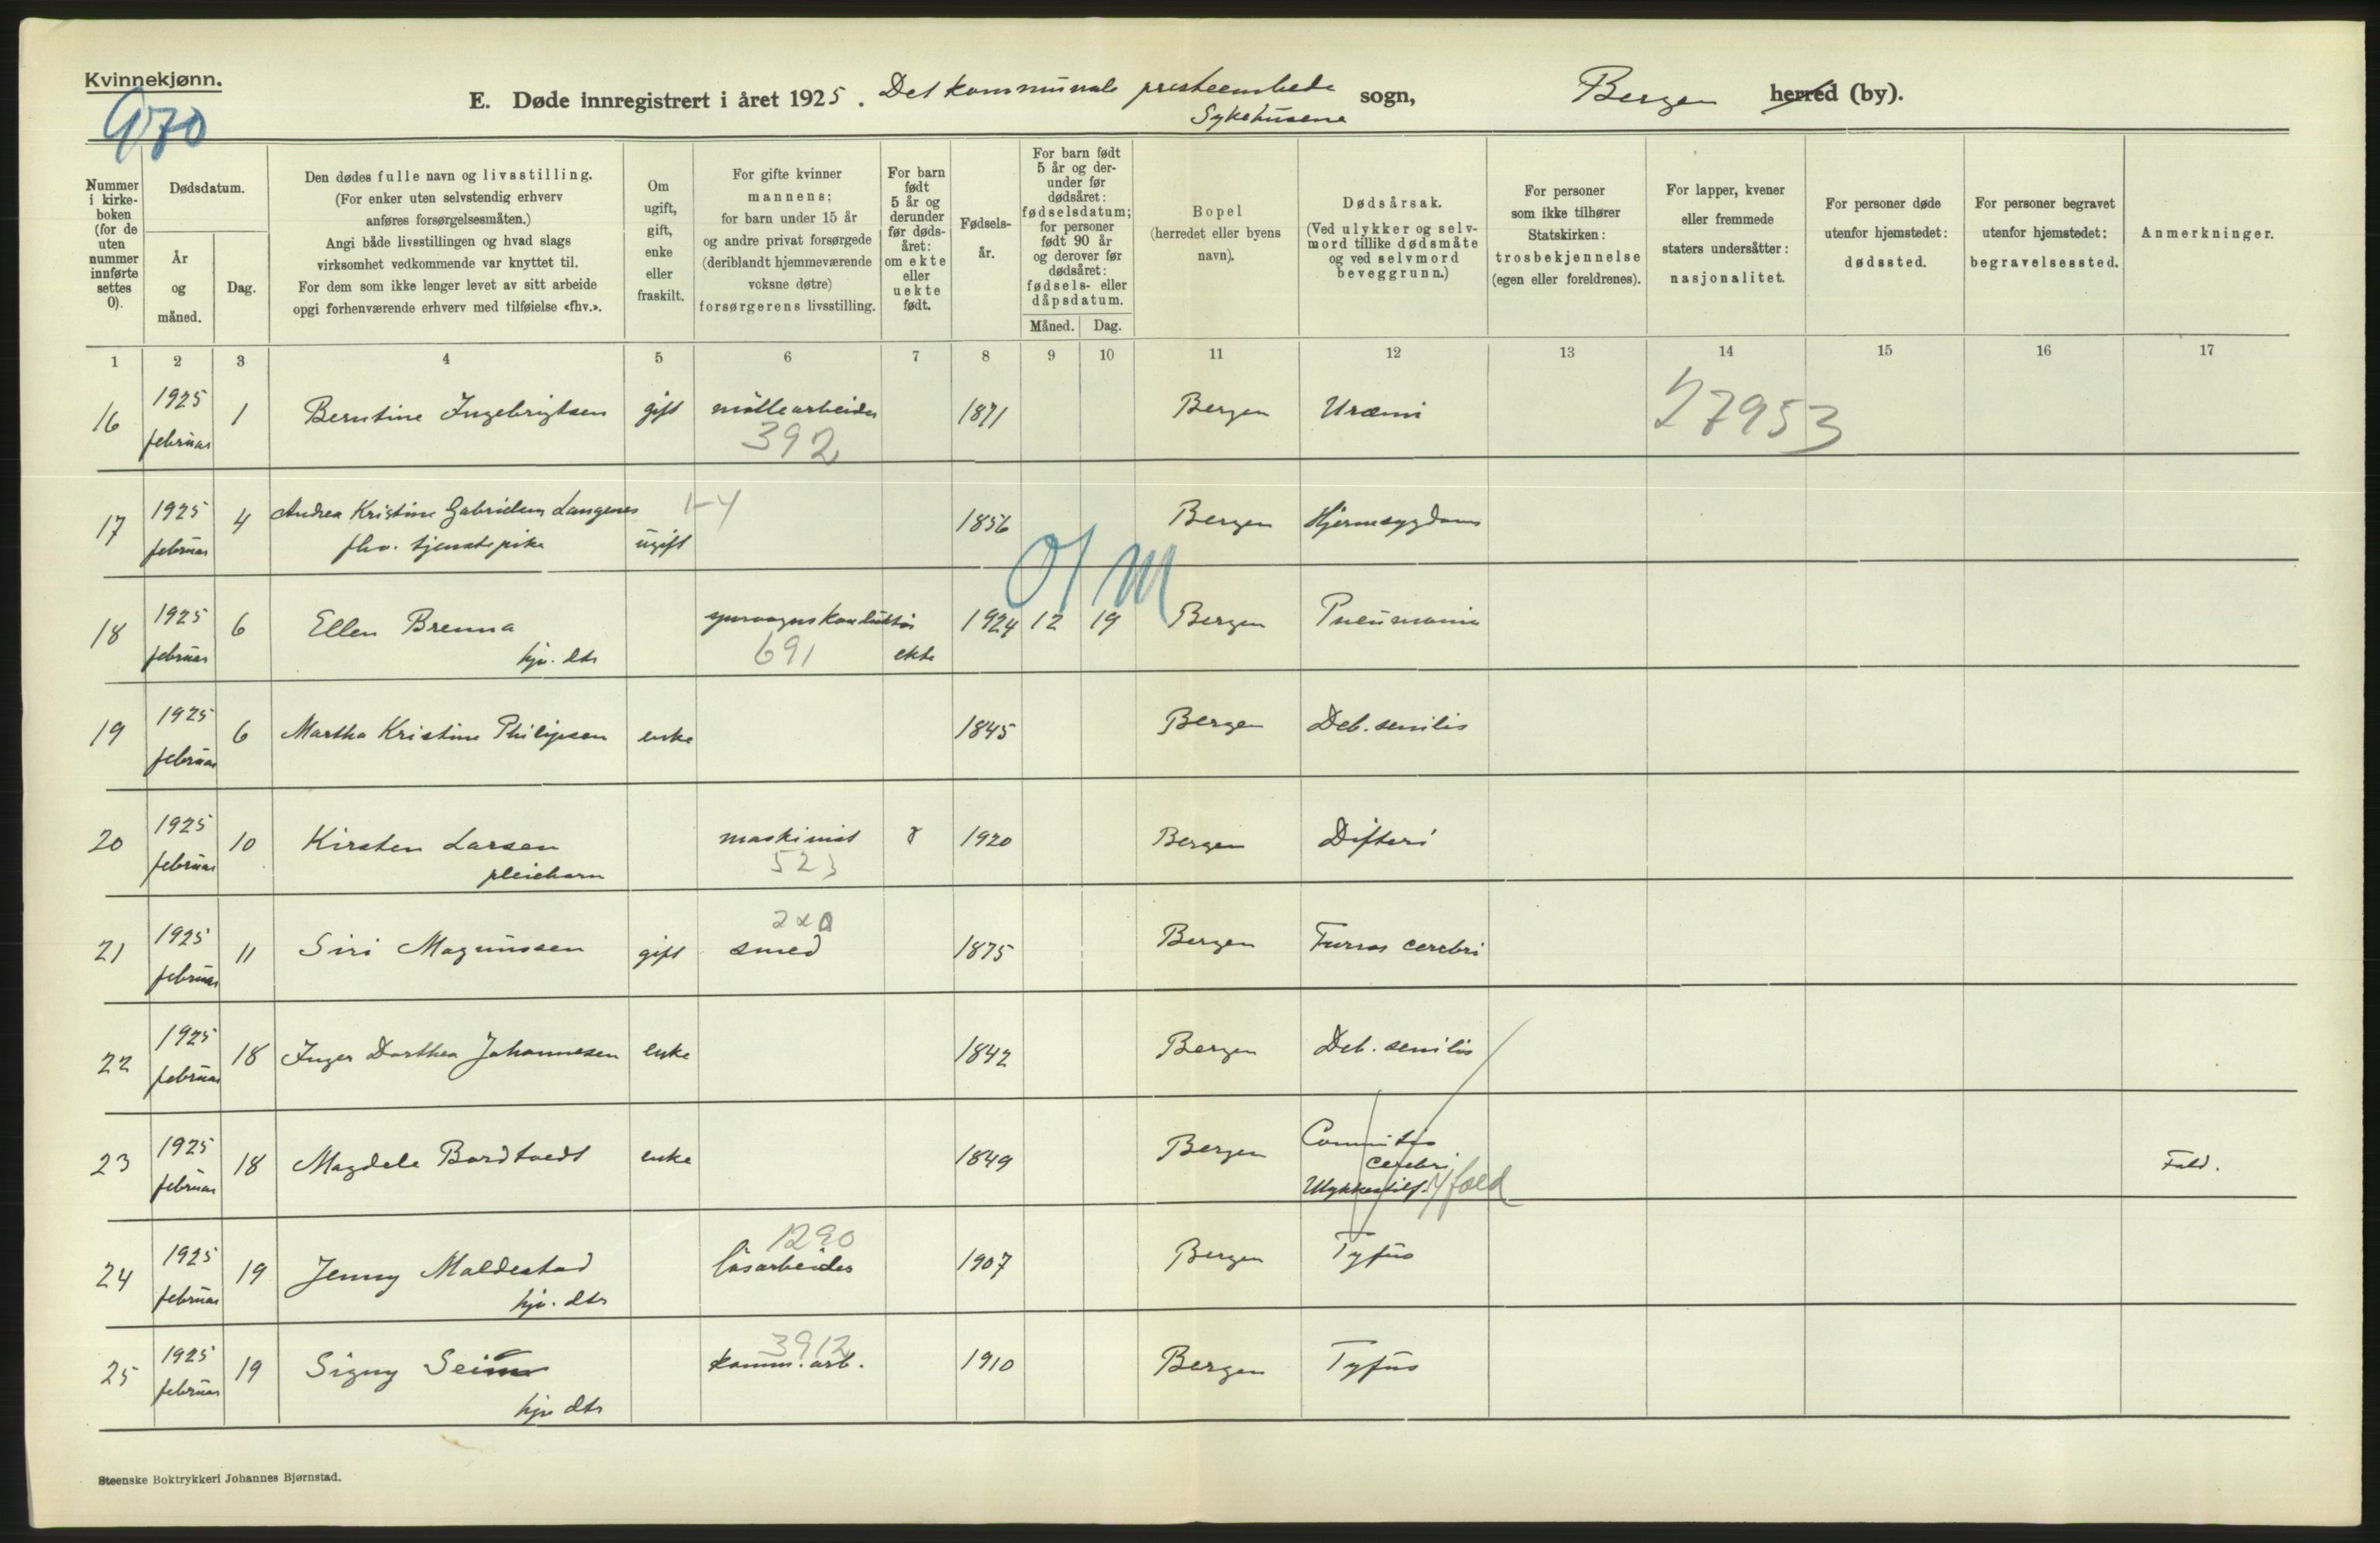 Kvinnekjønn.
970
E. Døde innregistrert i året 1925. Det kommunale presteembede sogn, Bergen herred (by).
Sykehusene
Nummer i kirke-boken (for de uten nummer innførte settes 0).
Dødsdatum.
År og måned.
Dag.
Den dødes fulle navn og livsstilling.
(For enker uten selvstendig erhverv
anføres forsørgelsesmåten.)
Angi både livsstillingen og hvad slags
virksomhet vedkommende var knyttet til.
For dem som ikke lenger levet av sitt arbeide
opgi forhenværende erhverv med tilføielse «fhv.».
Om ugift, gift, enke eller fraskilt.
For gifte kvinner
mannens;
for barn under 15 år
og andre privat forsørgede
(deriblandt hjemmeværende
voksne døtre)
forsørgerens livsstilling.
For barn født 5 år og derunder før døds-året: om ekte eller uekte født.
Fødsels-år.
For barn født 5 år og der-under før dødsåret: fødselsdatum; for personer født 90 år og derover før dødsåret: fødsels- eller dåpsdatum.
Måned. Dag.
Bopel
(herredet eller byens
navn).
Dødsårsak.
(Ved ulykker og selv-
mord tillike dødsmåte
og ved selvmord
beveggrunn.)
For personer
som ikke tilhører
Statskirken:
trosbekjennelse
(egen eller foreldrenes).
For lapper, kvener
eller fremmede
staters undersåtter:
nasjonalitet.
For personer døde
utenfor hjemstedet:
dødssted.
For personer begravet
utenfor hjemstedet:
begravelsessted.
Anmerkninger.
1 2 3 4 5 6 7 8 9 10 11 12 13 14 15 16 17
16 1925 februar 1 Berntine Ingebrigtsen gift møllearbeider 1871 Bergen Uræmi
392 27953
17 1925 februar 4 Andrea Kristine Gabrielsen Langenes 1-4 1856 Bergen Hjernesygdom
fhv. tjenestepike ugift
18 1925 februar 6 Ellen Brenna sporvognskonduktør 1924 12 19 Bergen Pneumonia
hjv. dtr 691 ekte
19 1925 februar 6 Martha Kristine Philipsen enke 1845 Bergen Deb. senilis
20 1925 februar 10 Kirsten Larsen maskinist ? 1920 Bergen Difteri
pleiebarn 523
21 1925 februar 11 Siri Magnussen gift smed 1875 Bergen Tumor cerebri
22 1925 februar 18 Inger Dorthea Johannesen enke 1842 Bergen Deb. senilis
23 1925 februar 18 Magdele Bordtvedt enke 1849 Bergen Commotio
cerebri
Ulykkestilf. fald
Fald.
24 1925 februar 19 Jenny Maldestad løsarbeider 1907 Bergen Tyfus
hjv. dtr 1290
25 1925 februar 19 Signy Seim komm. arb. 1910 Bergen Tyfus
hjv dtr 3912
Steenske Boktrykkeri Johannes Bjørnstad.